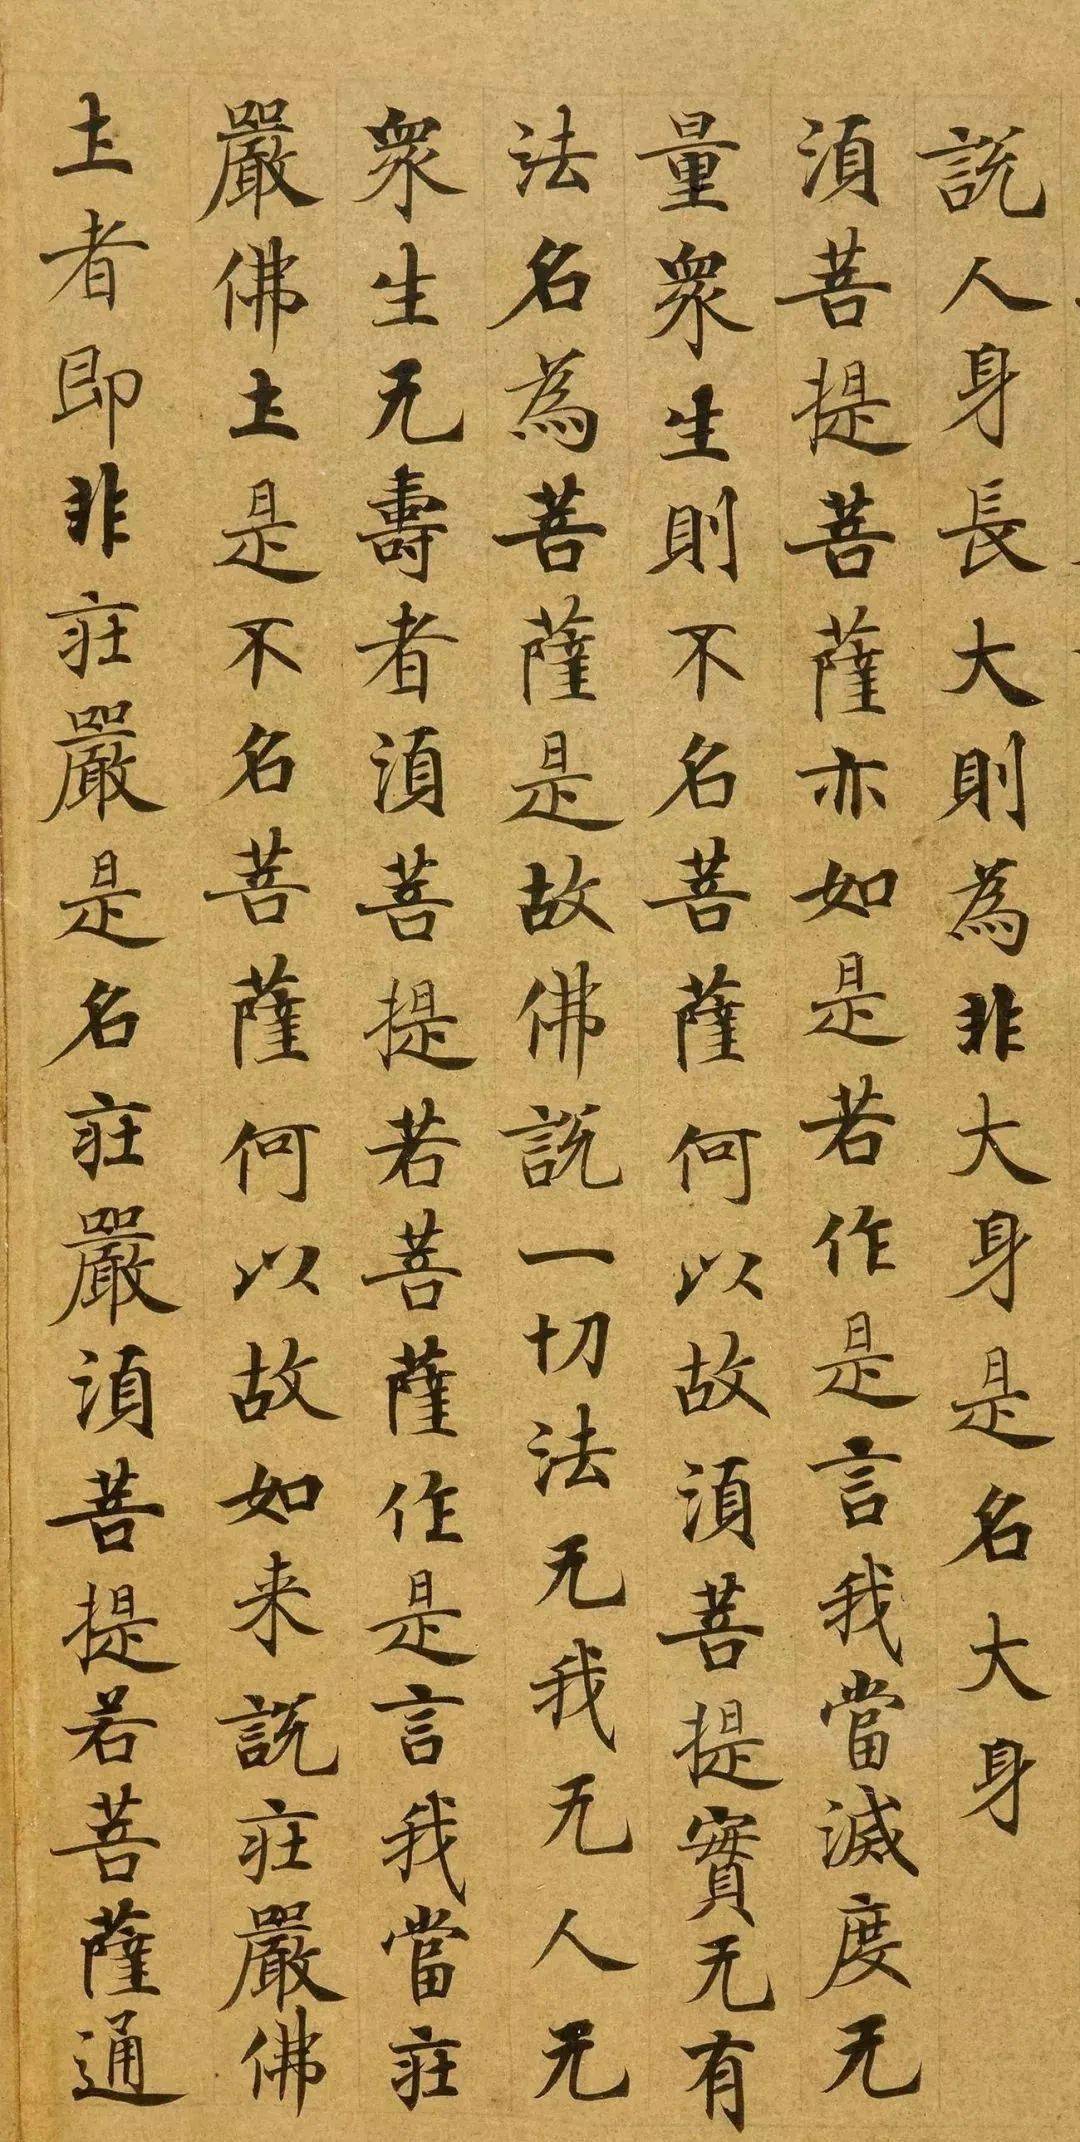 說人身長大則為非大身是名大身
須菩提菩薩亦如是若作是言我當滅度无
量眾生則不名菩薩何以故須菩提實无有
法名為菩薩是故佛說一切法无我无人无
眾生无壽者須菩提若菩薩作是言我當莊
嚴佛土是不名菩薩何以故如来說莊嚴佛
土者即非莊嚴是名莊嚴須菩提若菩薩通